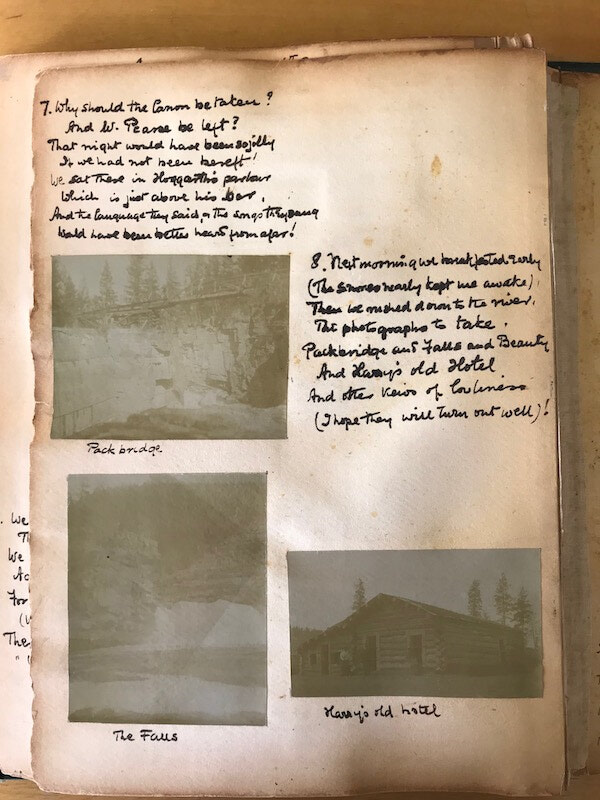 7. Why should the Canon be taken?
And W. Pearse be left?
That night would have been so jolly
If we had not been bereft!
We sat there in Hoggarth's parlour
Which is just above his bar,
And the language they said or the songs they sang
Would have been better heard from afar!
8. Next morning we breakfasted early
(The snores nearly kept me awake)
Then we rushed down to the river,
The photographs to take.
Packbridge and Falls and Beauty
And Harry's old Hotel
And other views of loveliness
(I hope they will turn out well)!
Pack bridge.
The Falls
Harry's old hotel
We
Th
We
Ac
For
The